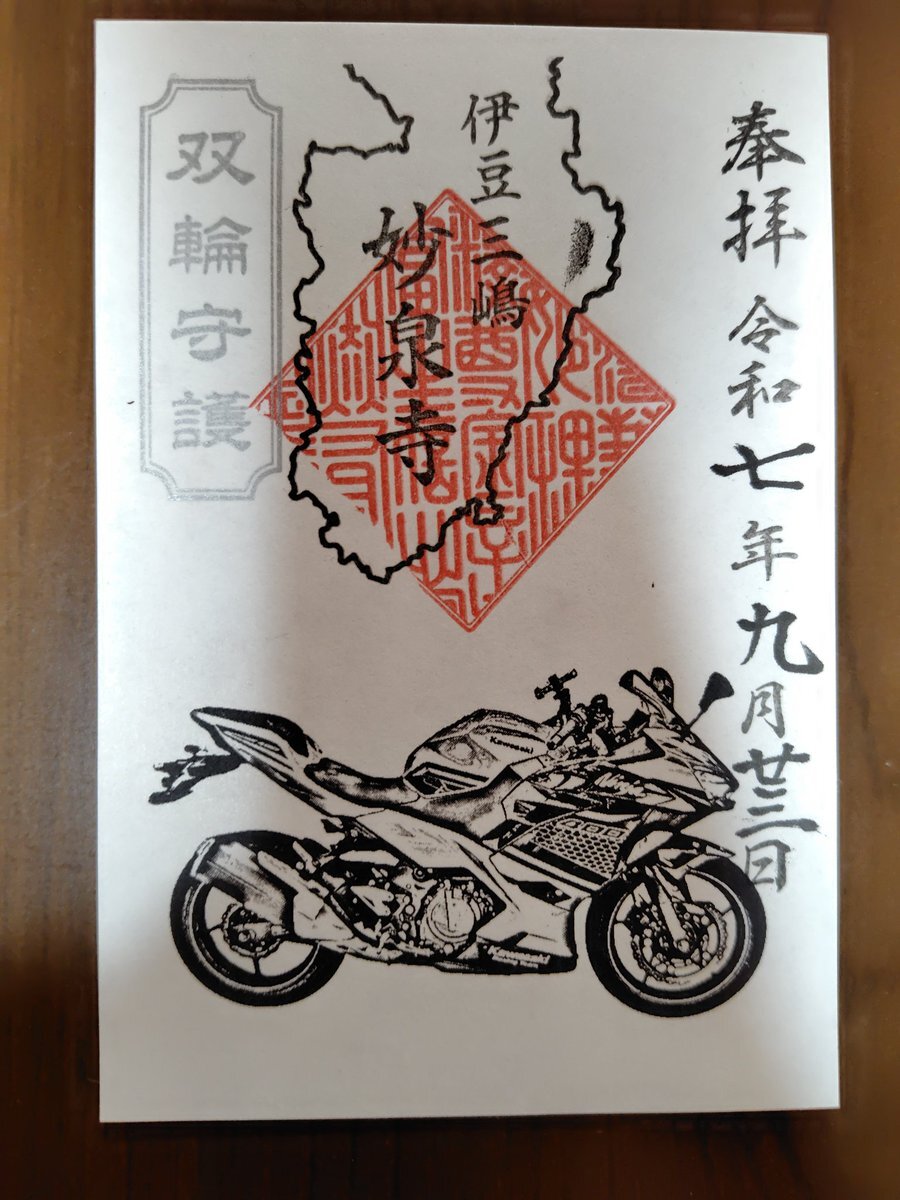 奉拝 令和七年九月廿三日
伊豆三嶋
妙泉寺
双輪守護
Kawasaki
Ninja
Kawasaki